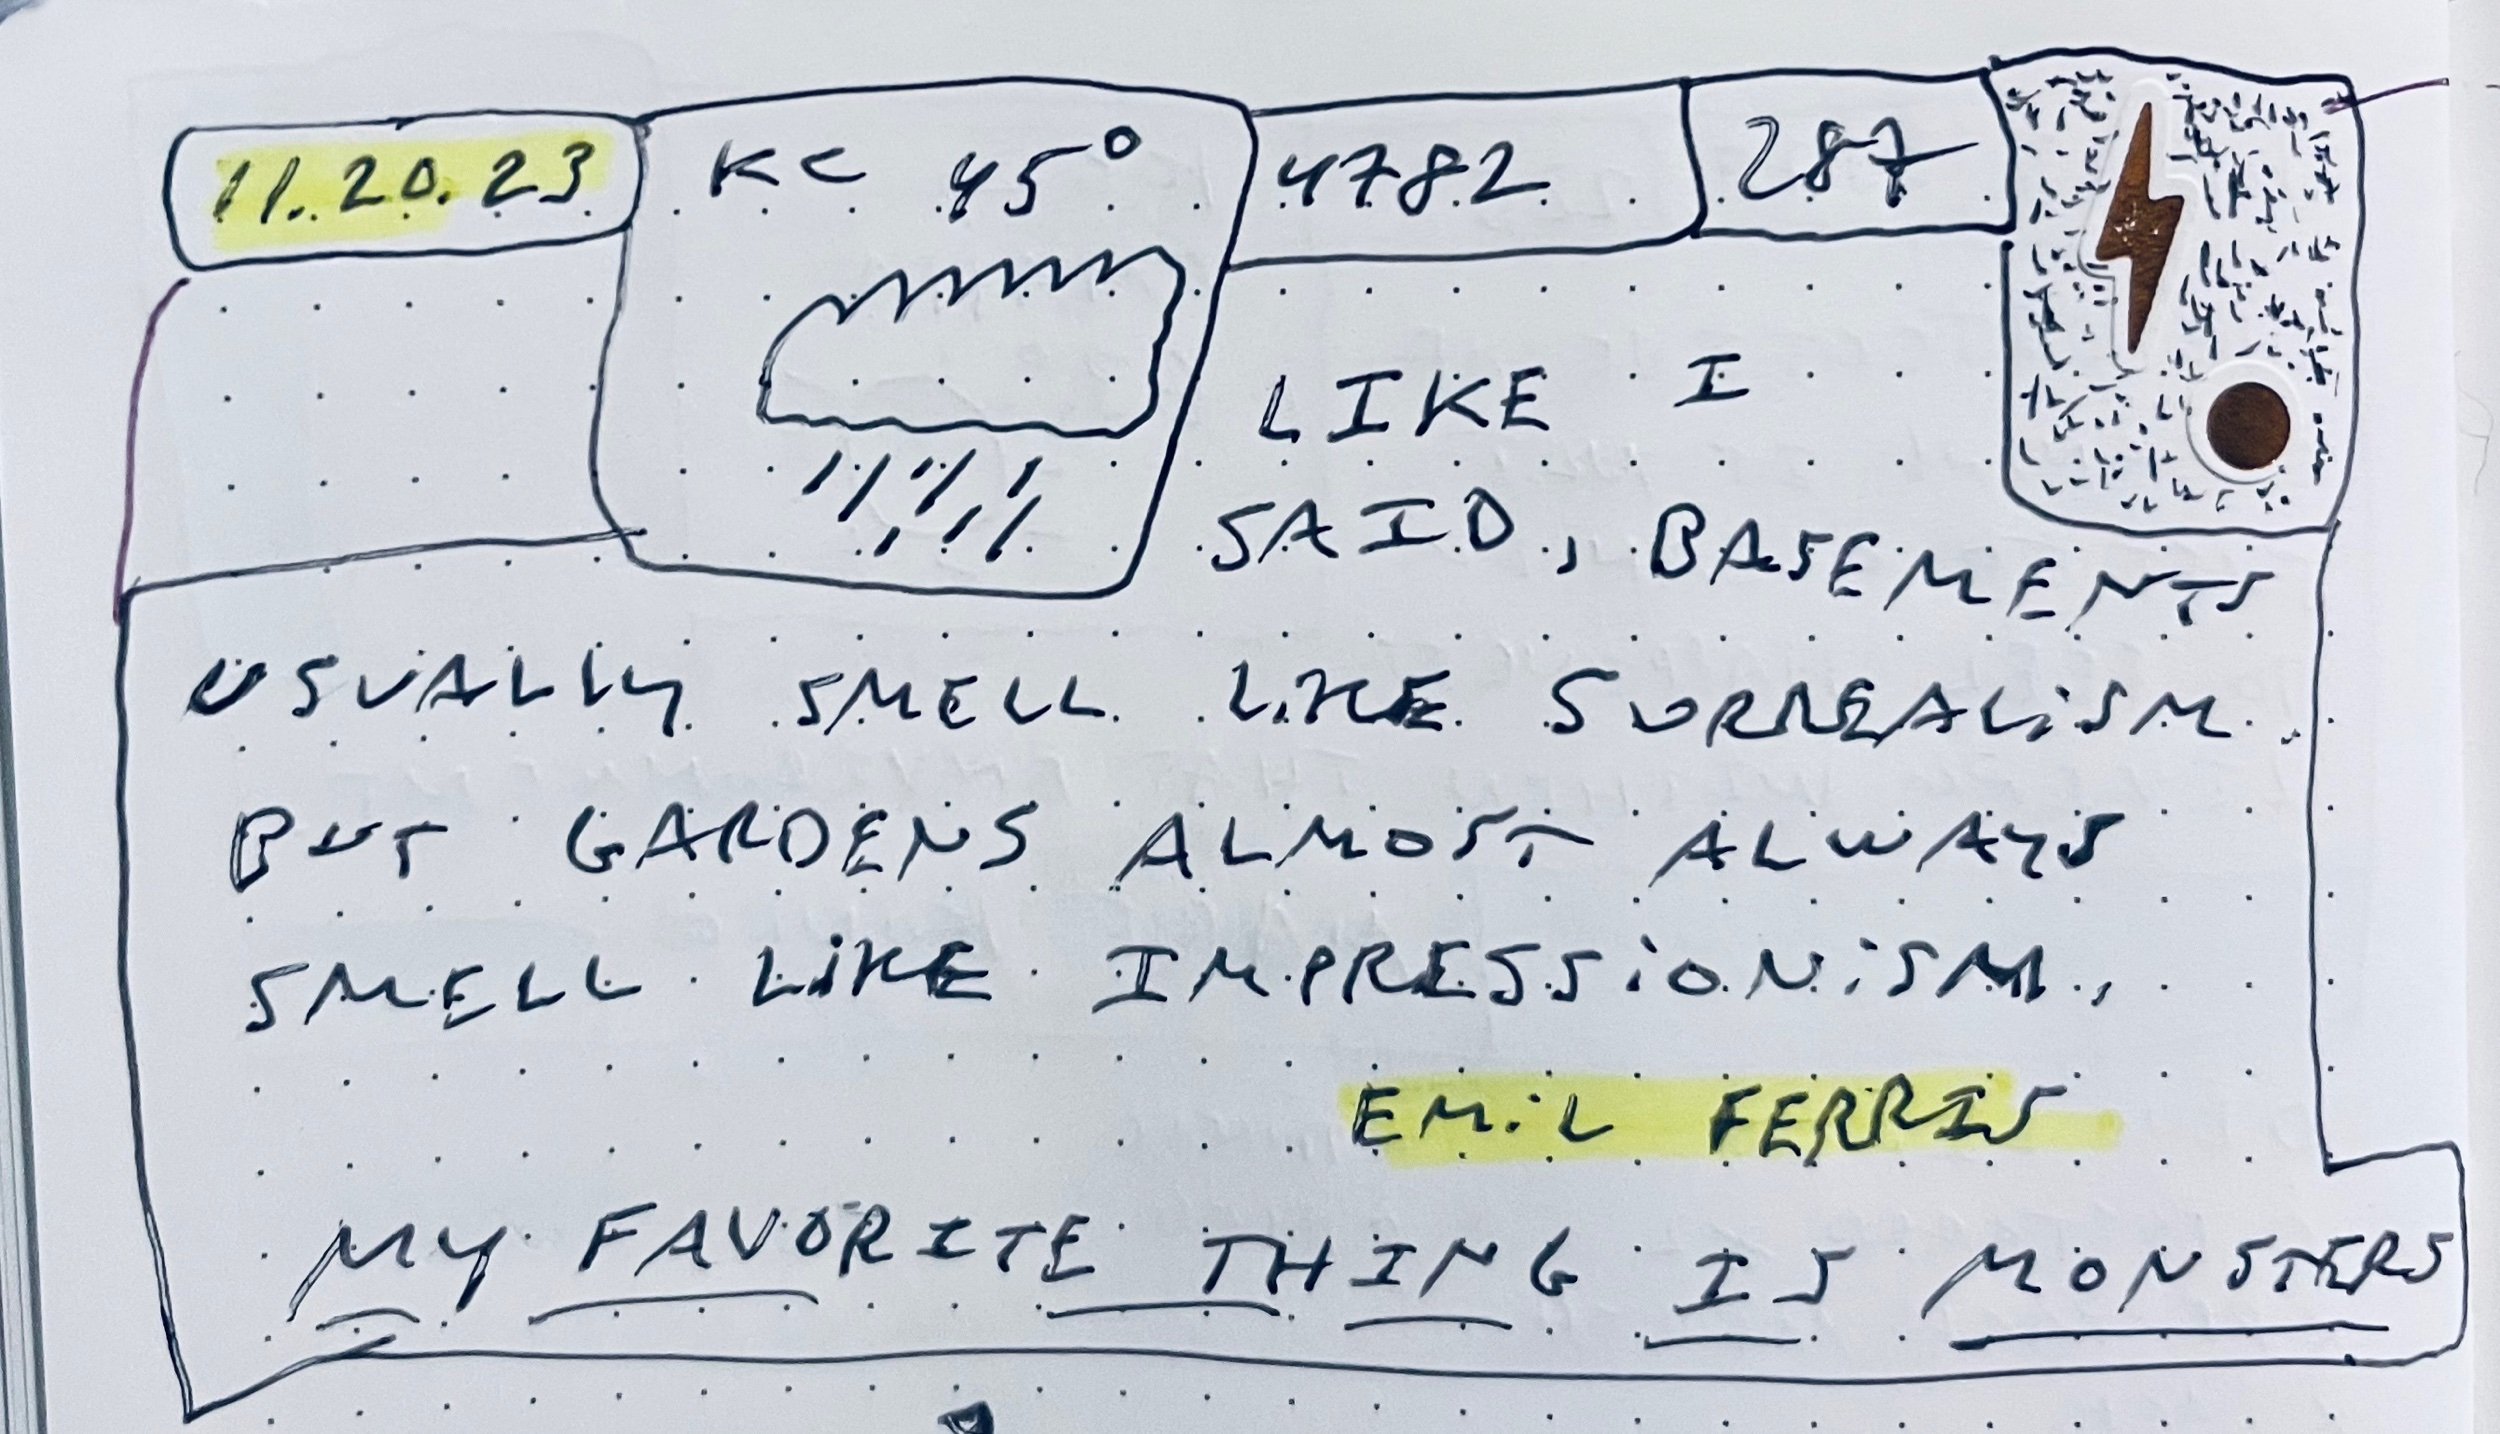 11.20.23 KC 45° 4782 287
LIKE I
SAID, BASEMENTS
USUALLY SMELL LIKE SURREALISM.
BUT GARDENS ALMOST ALWAYS
SMELL LIKE IMPRESSIONISM.
EMIL FERRIS
MY FAVORITE THING IS MONSTERS